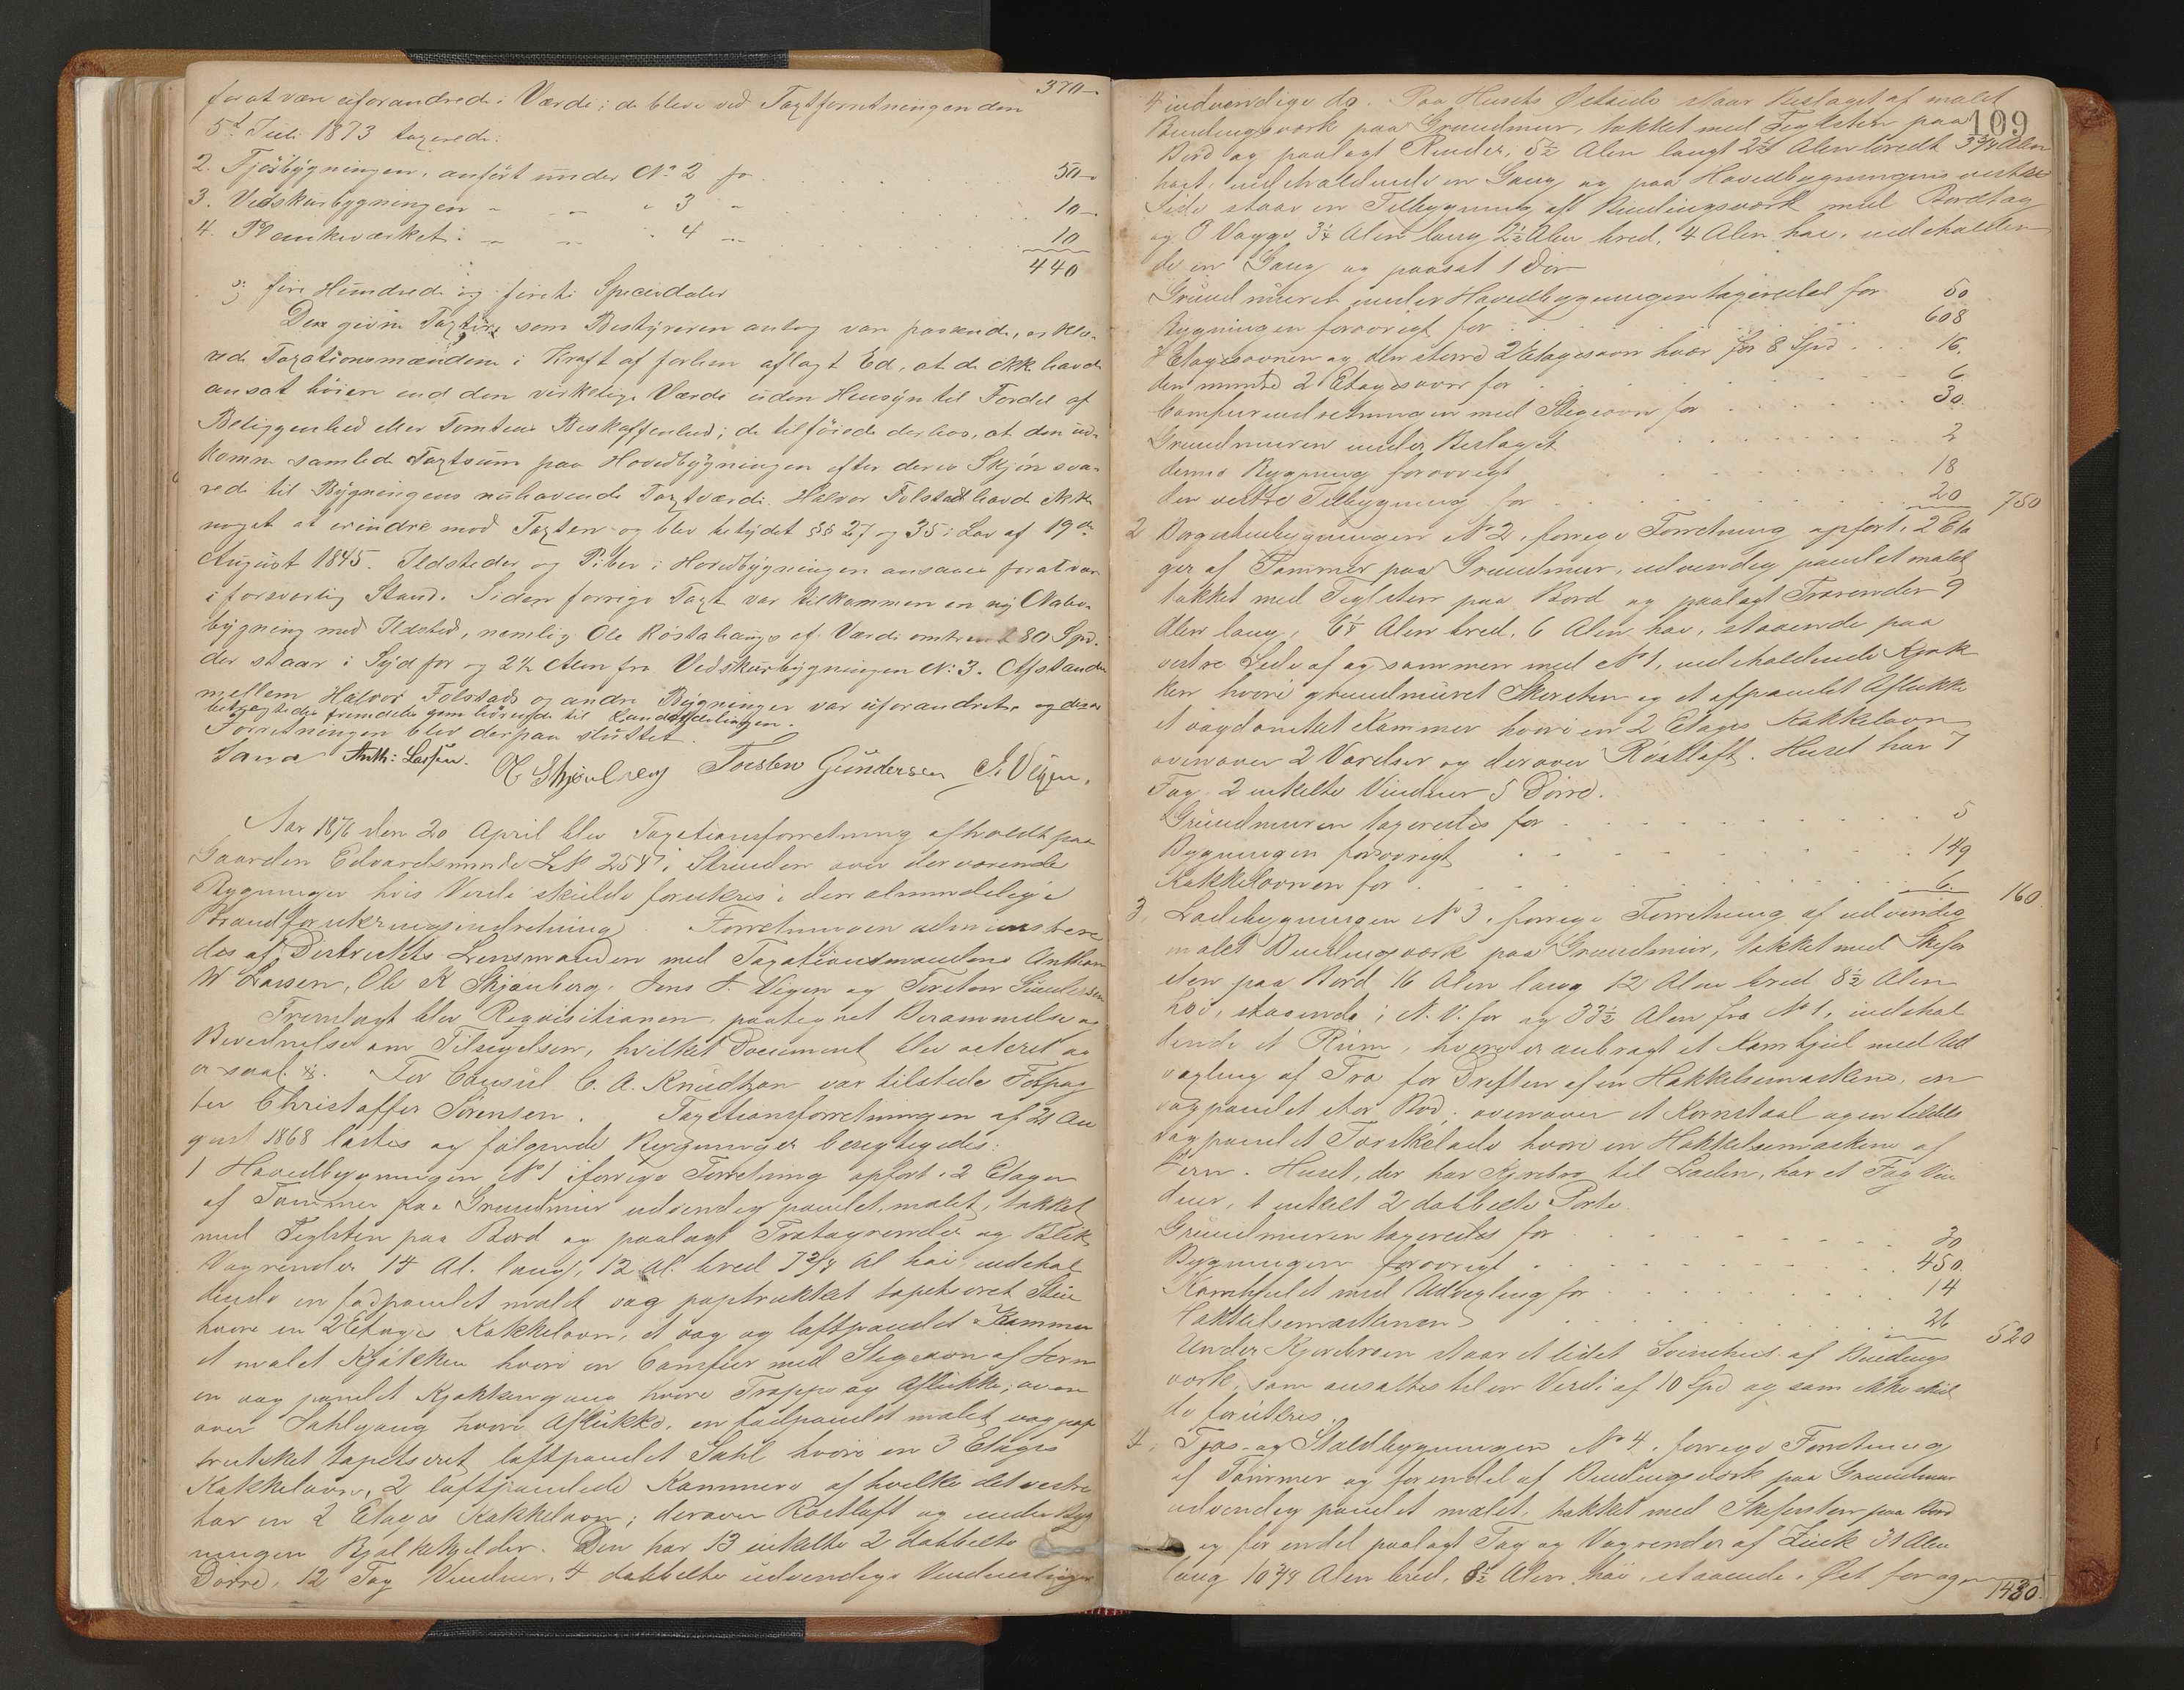 370-
for at være uforandrede i Værdi; de bleve ved Taxtforretningen den
5t Juli 1873 taxerede.
2. Fjøsbygningen, anført under No 2 for . . . 50-
3. Vedskurbygningen " — " 3 — . . . 10-
4. Plankeværket " — " 4 — . . . 10
440
fire Hundrede og førti Speciedaler
Den givne Taxt, som Bestyreren antog var passende, erklæ-
rede Taxationsmændene i Kraft af forhen aflagt Ed, at de ikke havde
ansat høiere end den virkelige Værdi uden Hensyn til Fordel af
Beliggenhed eller Tomtens Beskaffenhed; de tilføiede derhos, at den ud-
komne samlede Taxtsum paa Hovedbygningen efter deres Skjøn sva-
rede til Bygningens nuhavende Taxtværdi. Halvor Folstad havde ikke
noget at erindre mod Taxten og blev betydet §§ 27 og 35 i Lov af 19de
August 1845. Ildsteder og Piber i Hovedbygningen ansaaes for at være
i forsvarlig Stand. Siden forrige Taxt var tilkommen en ny Nabo-
bygning med Ildsted, nemlig Ole Røstahaugs af Værdi omtrent 280 Spd.
der staar i Syd for og 2½ Alen fra Vedskurbygningen No 3. Afstanden
mellem Halvor Folstads og andre Bygninger var uforandret, og disse
betragtedes fremdeles som hørende til Landafdelingen.
Forretningen blev derpaa sluttet.
Sand Anth: Lassen. O K Skjønberg Torsten Gundersen J. Vigen.
Aar 1876 den 20 April blev Taxationsforretning afholdt paa
Gaarden Edvardsminde L No 254 i Strinden over derværende
Bygninger hvis Værdi skulde forsikres i den almindelige
Brandforsikringsindretning. Forretningen administrere
des af Distriktets Lensmanden med Taxationsmændene Anthon
W Lassen, Ole K Skjønberg, Jens J. Vigen og Torsten Gundersen
Fremlagt blev Requisitionen, paategnet Berammelse og
Bevidnelse om Tilsigelsen, hvilket Document blev acteret og
er saal. For Consul C. A. Knudtzon var tilstede Forpag
ter Christoffer Sørensen. Taxationsforretningen af 21 Au
gust 1868 læstes og følgende Bygninger besigtigedes.
1 Hovedbygningen No 1 i forrige Forretning opført i 2 Etager
af Tømmer paa Grundmur udvendig panelet, malet, tækket
med Teglsten paa Bord og paalagt Trætagrender og Blik
Vagrender 14 Al. lang, 12 Al. bred 7 3/4 Al høi indehol
dende en fadpanelet malet væg paptrukket tapetseret Stue
hvori en 2 Etages Kakkelovn, et væg og loftpanelet Kammer
et malet Kjøkken hvori en Comfur med Stegeovn af Jern
en væg panelet Kjøkkengang hvori Trappe og Aflukke; oven
over Sahlgang hvori Aflukke, en fadpanelet malet væg pap
trukket tapetseret loftpanelet Sahl hvori en 3 Etages
Kakkelovn, 2 loftpanelede Kammere af hvilke det vestre
har en 2 Etages Kakkelovn; derover Røstloft og under Byg
ningen Bjelkekjelder. Den har 13 enkelte 2 dobbelte
Dørre, 12 Fag Vinduer, 4 dobbelte udvendige
109
4 indvendige do. Paa Husets Østside staar Beslaget af malet
Bindingsværk paa Grundmur, tækket med Teglsten paa
Bord og paalagt Render, 5½ Alen langt 2½ Alen bredt 3 3/4 Alen
høit, indeholdende en Gang og paa Hovedbygningens vestre
Side staar en Tilbygning af Bindingsværk med Bordtag
og 0 Vægge 3¼ Alen lang 2½ Alen bred, 4 Alen høi, indeholden
de en Gang og paasat 1 Dør
Grundmuren under Hovedbygningen taxeredes for 50
Bygningen forøvrigt for . . . 608
3 Etagesovnen og den større 2 Etagesovn hver for 8 Spd . . . 16.
den mindre 2 Etagesovn for . . . 6
Comfurindretningen med Stegeovn for . . . 30
Grundmuren under Beslaget . . . 2
dennes Bygning forøvrigt . . . 18
den vestre Tilbygning for . . . 20 750
2 Borgstubygningen No 2 i forrige Forretning opført i 2 Eta
ger af Tømmer paa Grundmur, udvendig panelet malet
tækket med Teglsten paa Bord og paalagt Trærender 9
Alen lang, Alen bred, 6 Alen høi, staaende paa
vestre Side af og sammen med No 1, indeholdende Kjøk
ken hvori grundmuret Skorsten og et afpanelet Aflukke
et Kammer hvori en 2 Etages Kakkelovn
ovenover 2 Værelser og derover Røstloft. Huset har 7
Fag 2 enkelte Vinduer 5 Dørre.
Grundmuren taxeredes for . . . 5
Bygningen forøvrigt . . . 149
Kakkelovnen for . . . 6. 160
3. Ladebygningen No 3 i forrige Forretning af udvendig
malet Bindingsværk paa Grundmur, tækket med Skifer
sten paa Bord 16 Alen lang 12 Alen bred 8½ Alen
høi, staaende i N.V. for og 33½ Alen fra No 1, indehol
dende et Rum, hvori er anbragt et Kamhjul med Ud
vexling af Træ for Driften af en Hakkelsemaskine, en
vægpanelet stor Bod; ovenover et Kornstaal og en tildels
vægpanelet Tørskelade hvori en Hakkelsemaskine af
Jern. Huset, der har Kjørebro til Laden, har et Fag Vin
duer, 1 enkelt 2 dobbelte Porte.
Grundmuren taxeredes for . . . 30
Bygningen forøvrigt . . . 450.
Kamhjulet med Udvexling for . . . 14
Hakkelsemaskinen . . . 26 520
Under Kjørebroen staar et lidet Svinehus af Bindings
værk, som ansattes til en Værdi af 10 Spd og som ikke skul
de forsikres.
4. Fjøs- og Staldbygningen No 4 i forrige Forretning
af Tømmer og for endel af Bindingsværk paa Grundmur
udvendig panelet malet, tækket med Skifersten paa Bord
og for endel paalagt Tag og Vagrender af Zink 31 Alen
lang 10 3/4 Alen bred, 8½ Alen høi, staaende i Øst for og
1430.